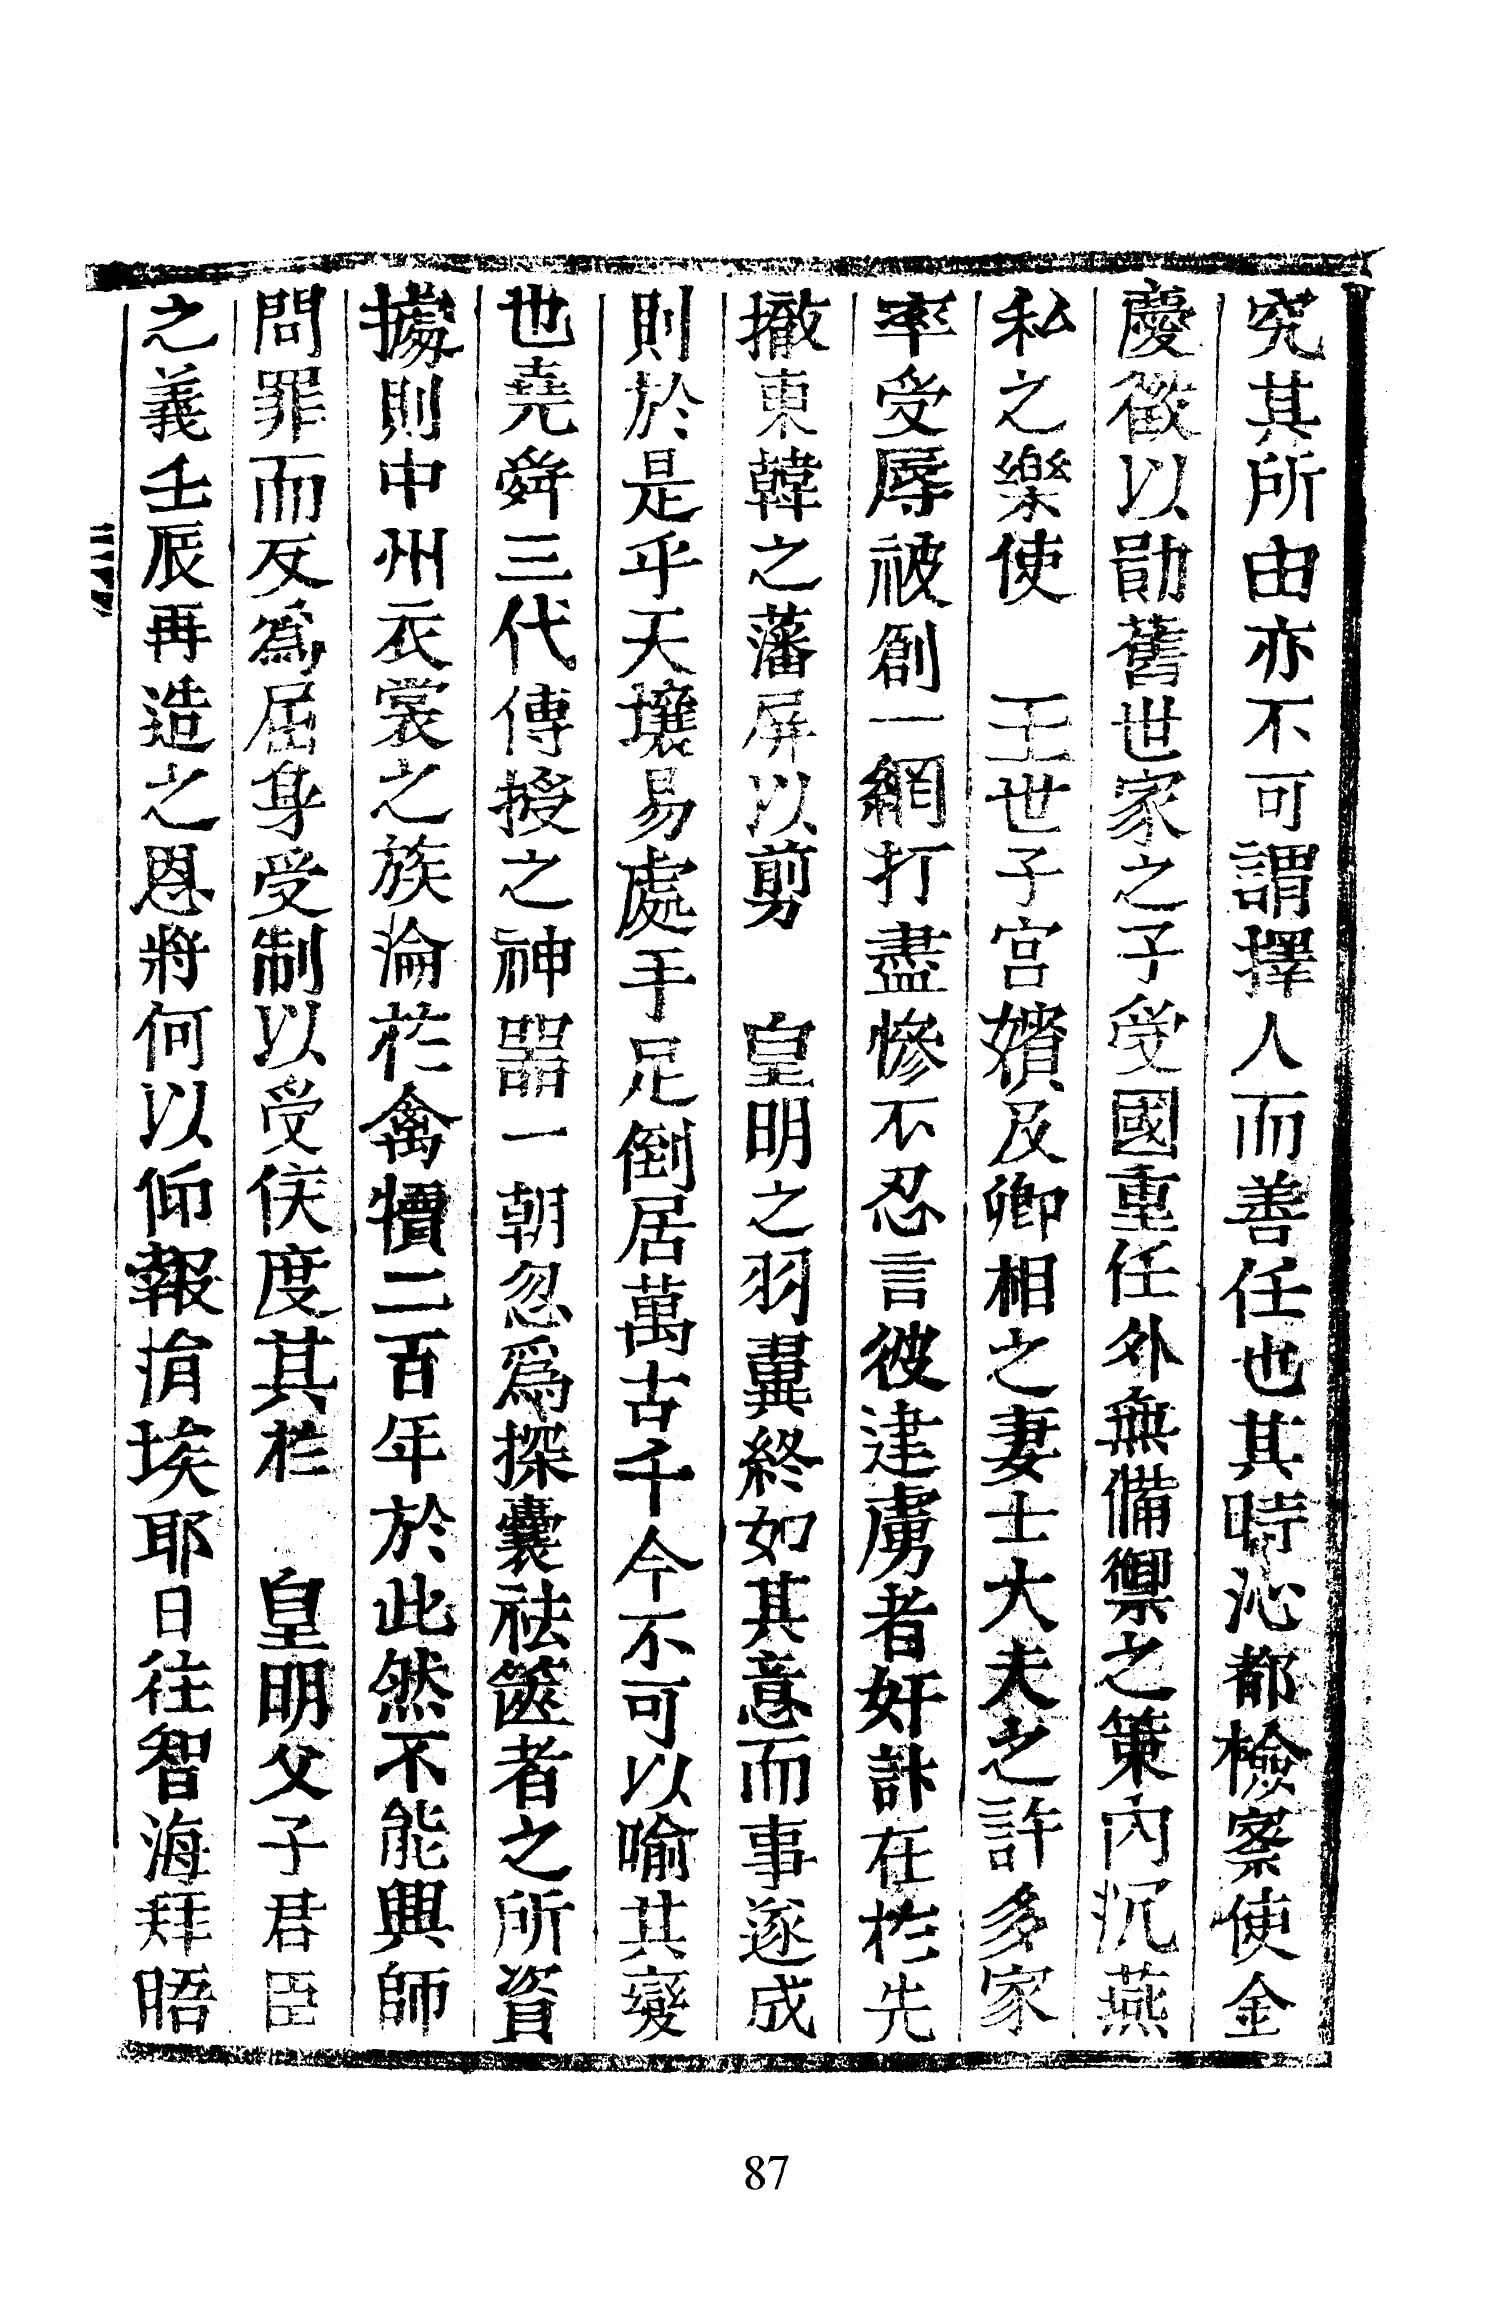 究其所由亦不可謂擇人而善任也其時沁都檢察使金
慶徵以勛舊世家之子受國重任外無備禦之策內沉燕
私之樂使 王世子宮嬪及卿相之妻士大夫之許多家
率受辱被創一網打盡慘不忍言彼建虜者奸計在於先
撤東韓之藩屏以剪 皇明之羽翼終如其意而事遂成
則於是乎天壤易處手足倒居萬古千今不可以喻其變
也堯舜三代傳授之神器一朝忽爲探囊祛篋者之所資
據則中州衣裳之族淪於禽犢二百年於此然不能興師
問罪而反爲屈身受制以受侯度其於 皇明父子君臣
之義壬辰再造之恩將何以仰報涓埃耶日往智海拜晤
87